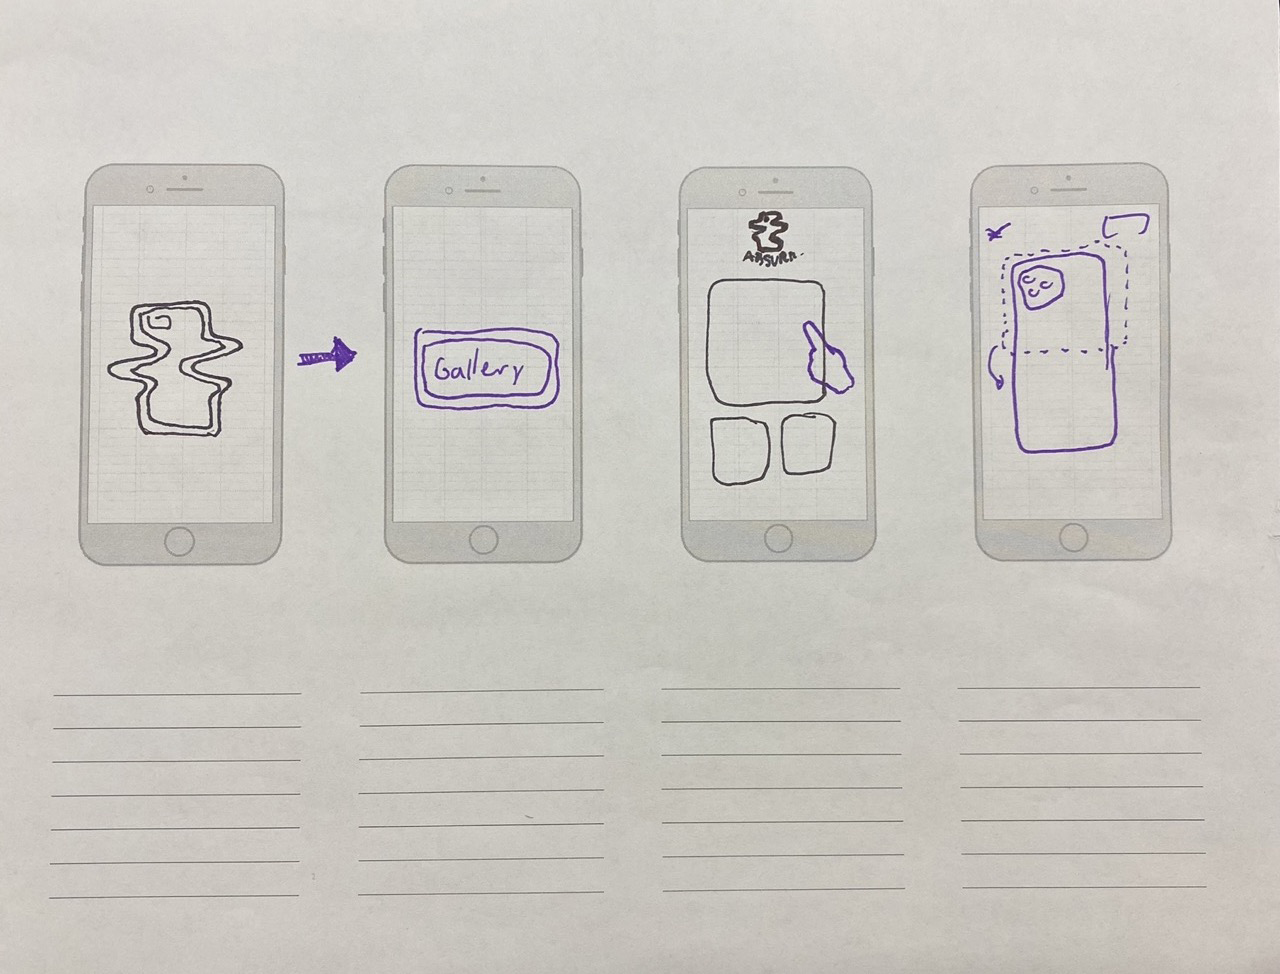 Gallery
ABSURR.